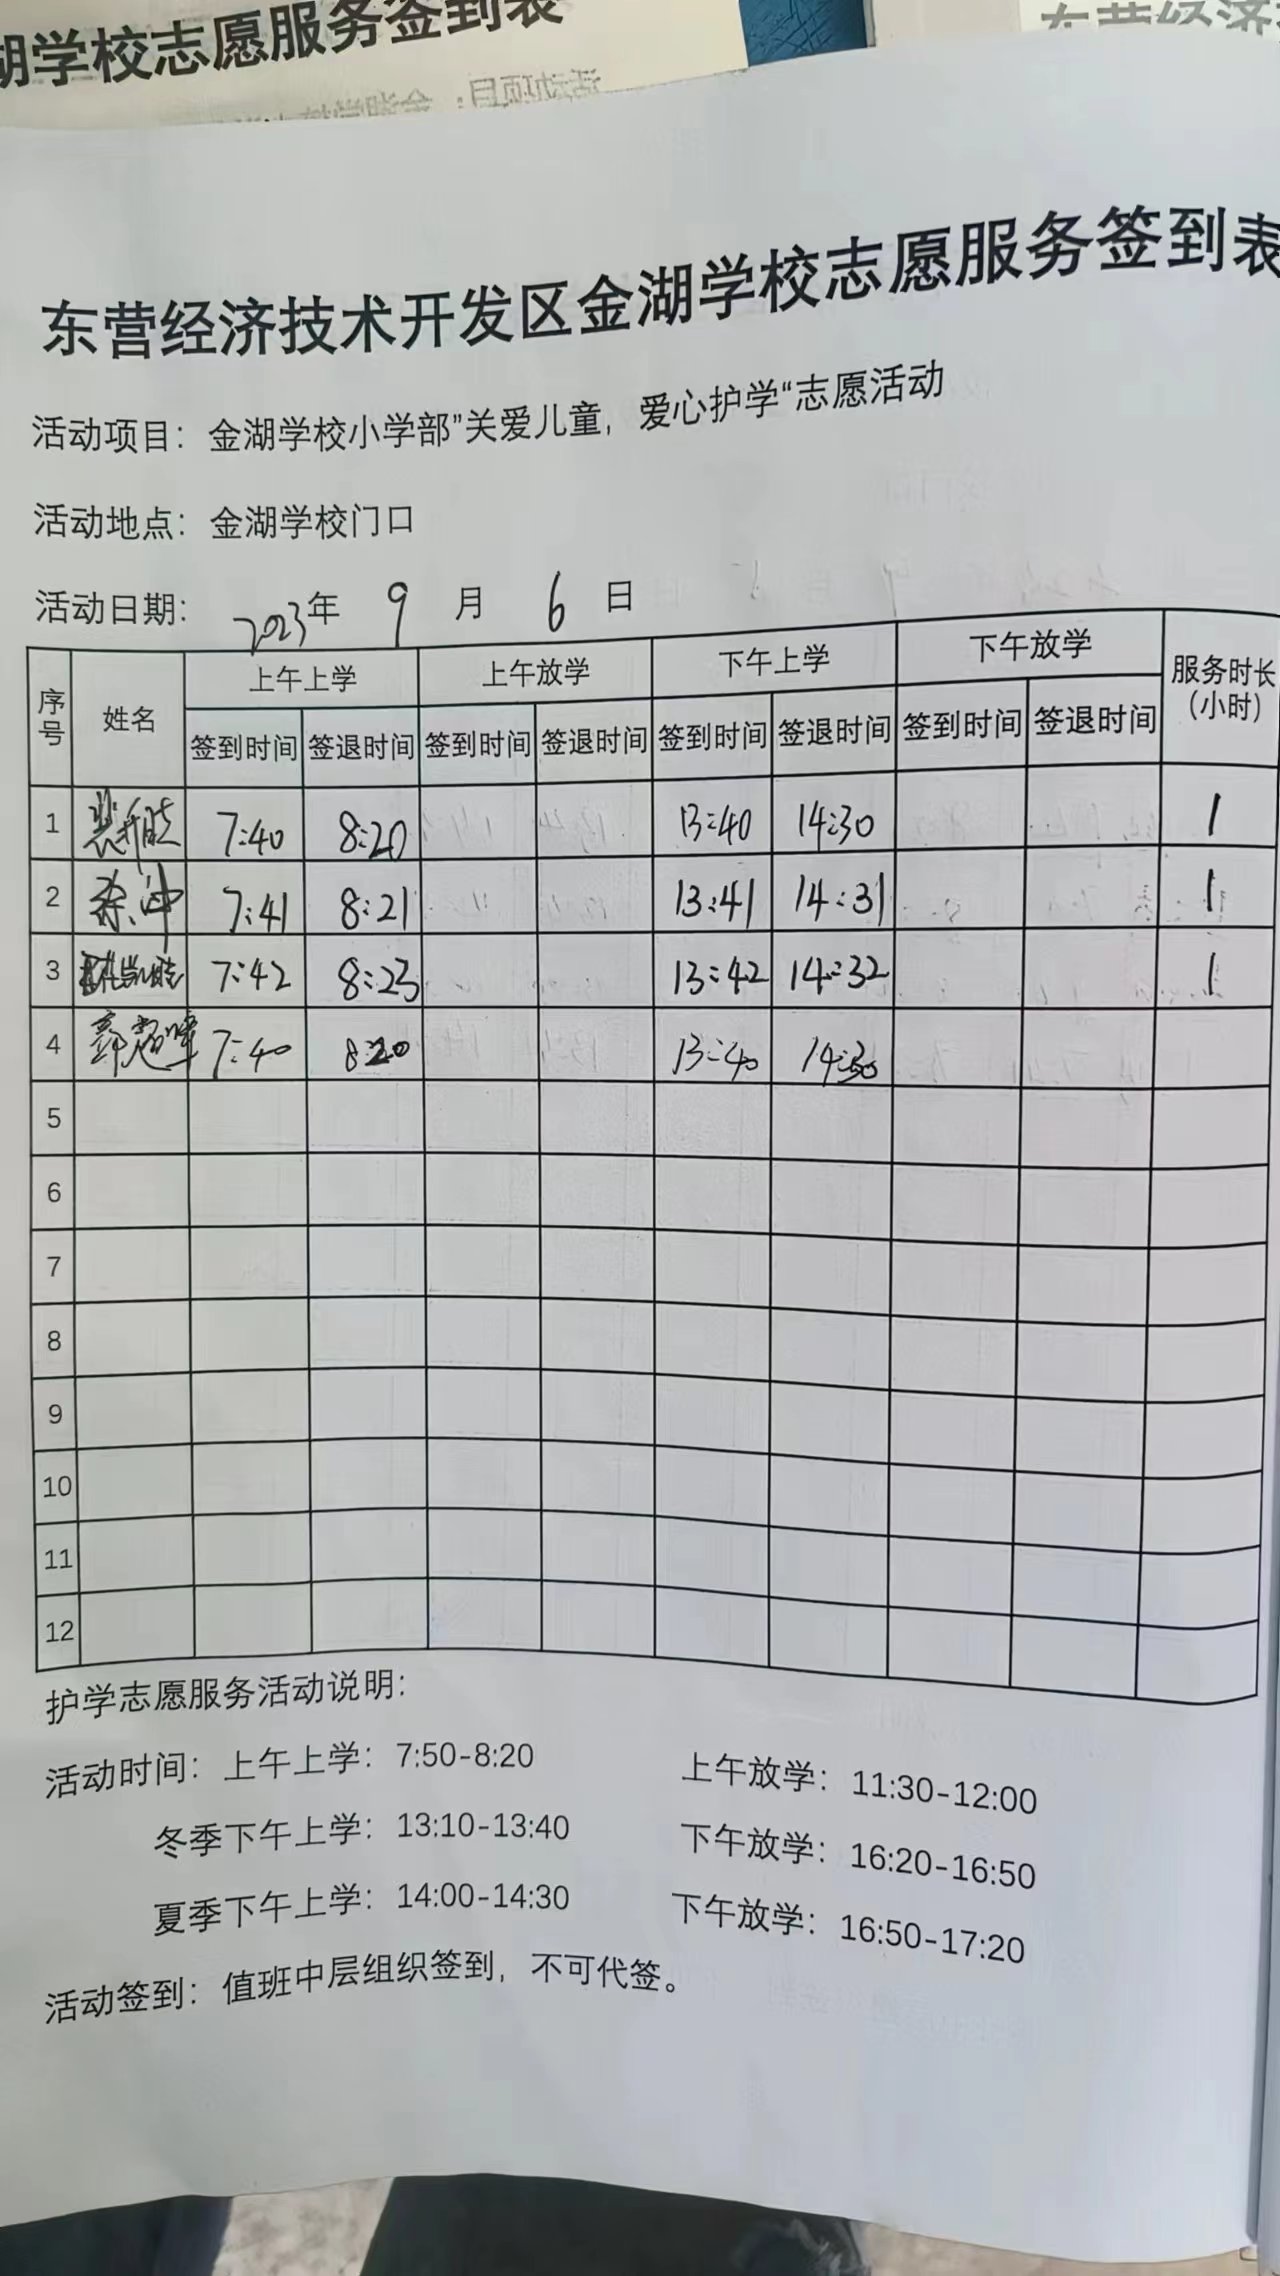 湖学校志愿服务签到表
东营经济
东营经济技术开发区金湖学校志愿服务签到表
活动项目：金湖学校小学部”关爱儿童，爱心护学“志愿活动
活动地点：金湖学校门口
活动日期：2023年 9 月 6 日
序号 姓名 上午上学 上午放学 下午上学 下午放学 服务时长（小时）
签到时间 签退时间 签到时间 签退时间 签到时间 签退时间 签到时间 签退时间
1 7:40 8:20 13:40 14:30 1
2 徐冲 7:41 8:21 13:41 14:31 1
3 7:42 8:23 13:42 14:32 1
4 郭超峰 7:40 8:20 13:40 14:30
5
6
7
8
9
10
11
12
护学志愿服务活动说明：
活动时间：上午上学：7:50-8:20 上午放学：11:30-12:00
冬季下午上学：13:10-13:40 下午放学：16:20-16:50
夏季下午上学：14:00-14:30 下午放学：16:50-17:20
活动签到：值班中层组织签到，不可代签。